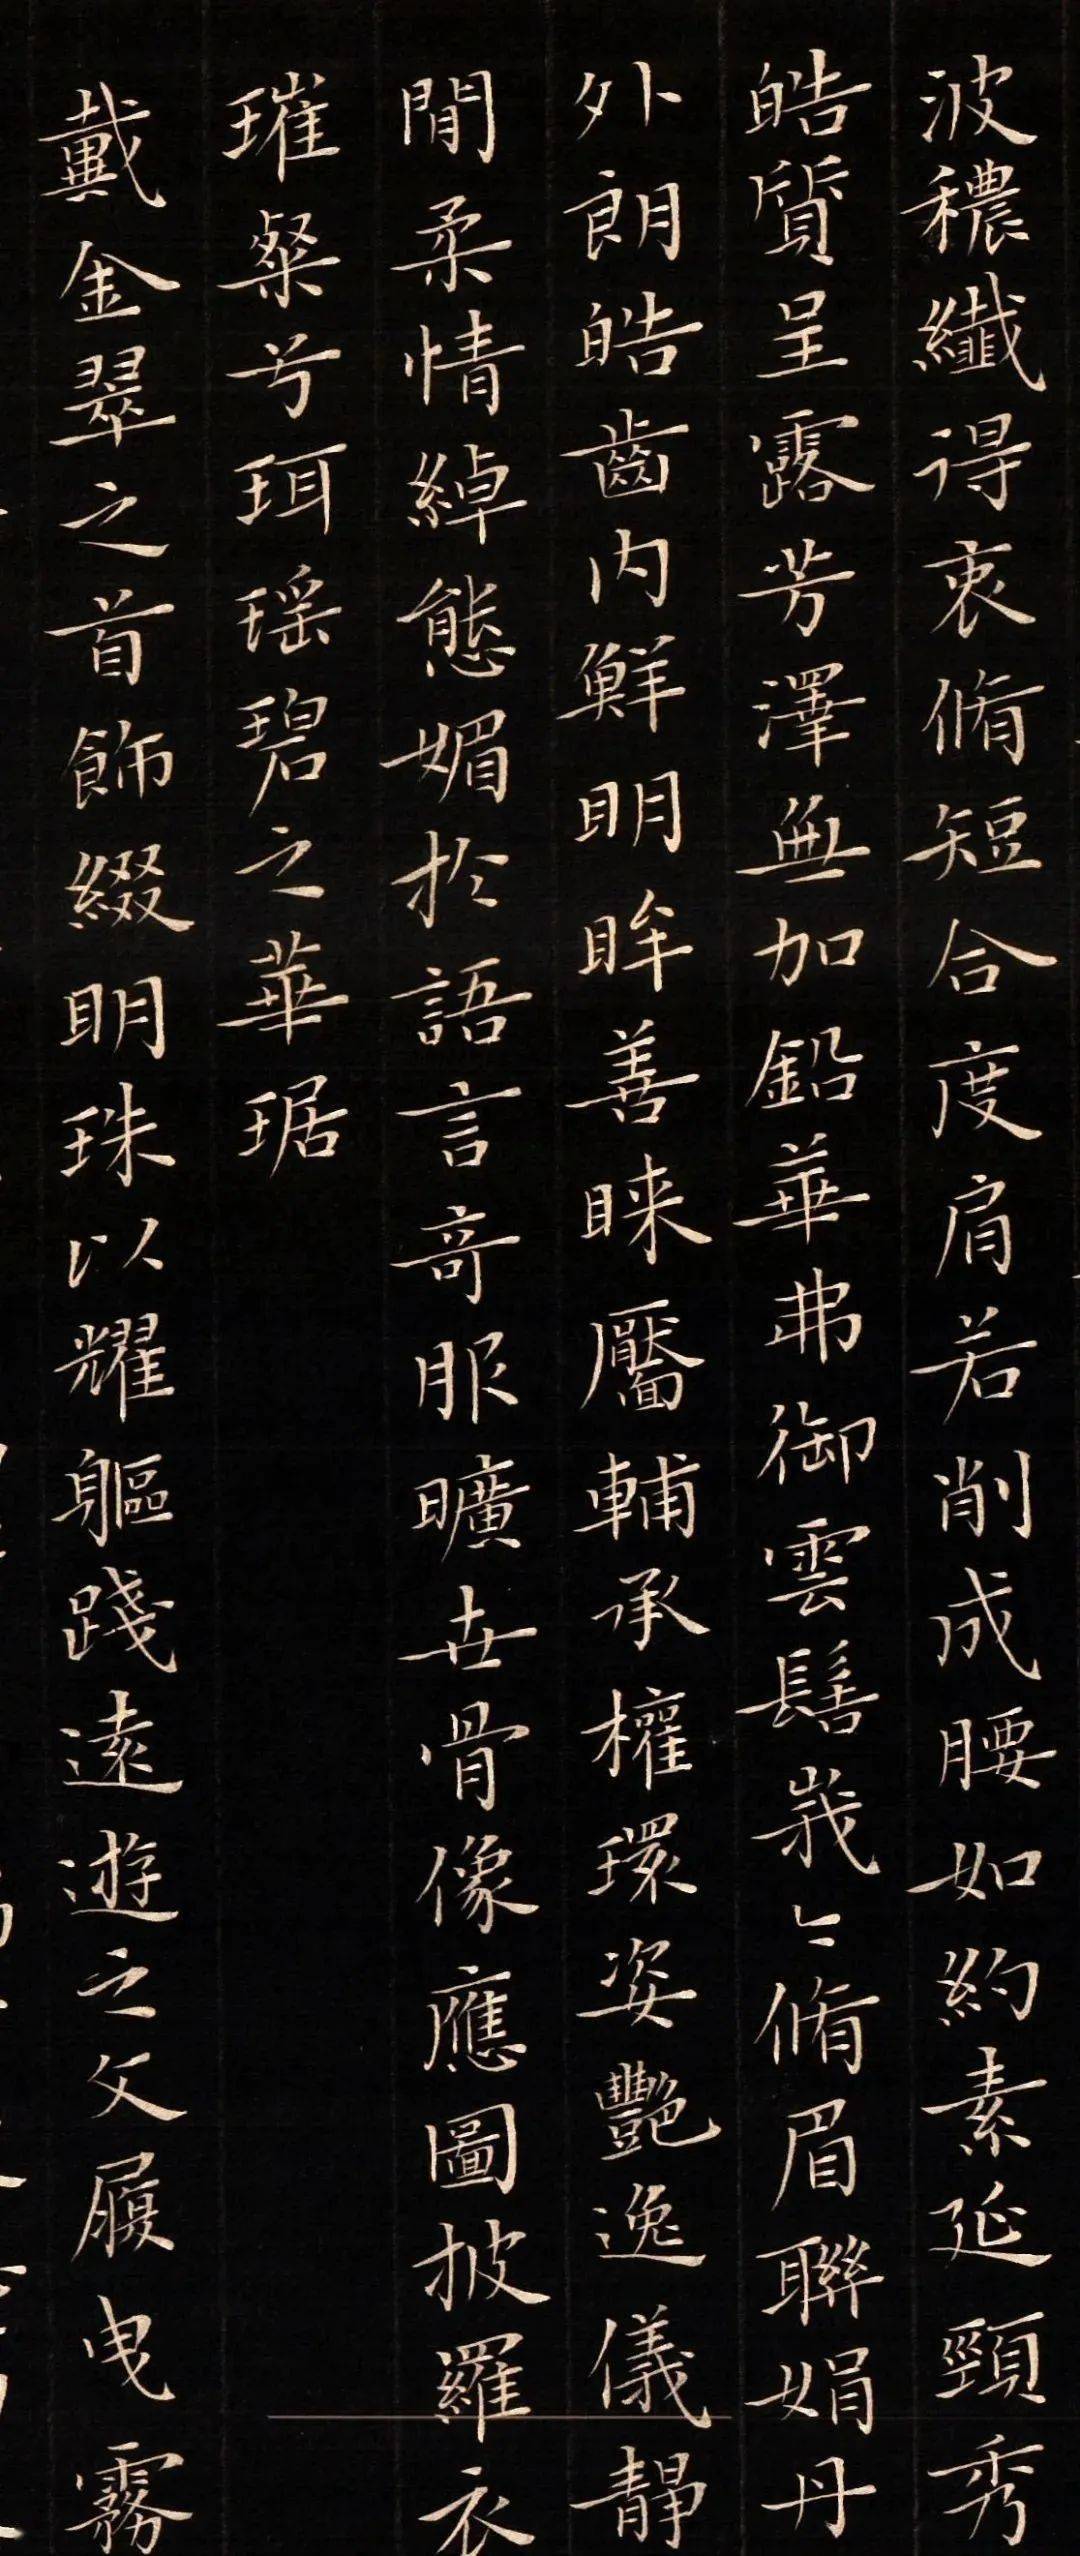 波穠纖得衷脩短合度肩若削成腰如約素延頸秀
皓質呈露芳澤無加鉛華弗御雲髻峩〻脩眉聯娟丹
外朗皓齒内鮮明眸善睞靨輔承權瓌姿艷逸儀靜
閒柔情綽態媚於語言奇服曠世骨像應圖披羅衣
璀粲兮珥瑶碧之華琚
戴金翠之首飾綴明珠以耀軀踐遠遊之文履曳霧